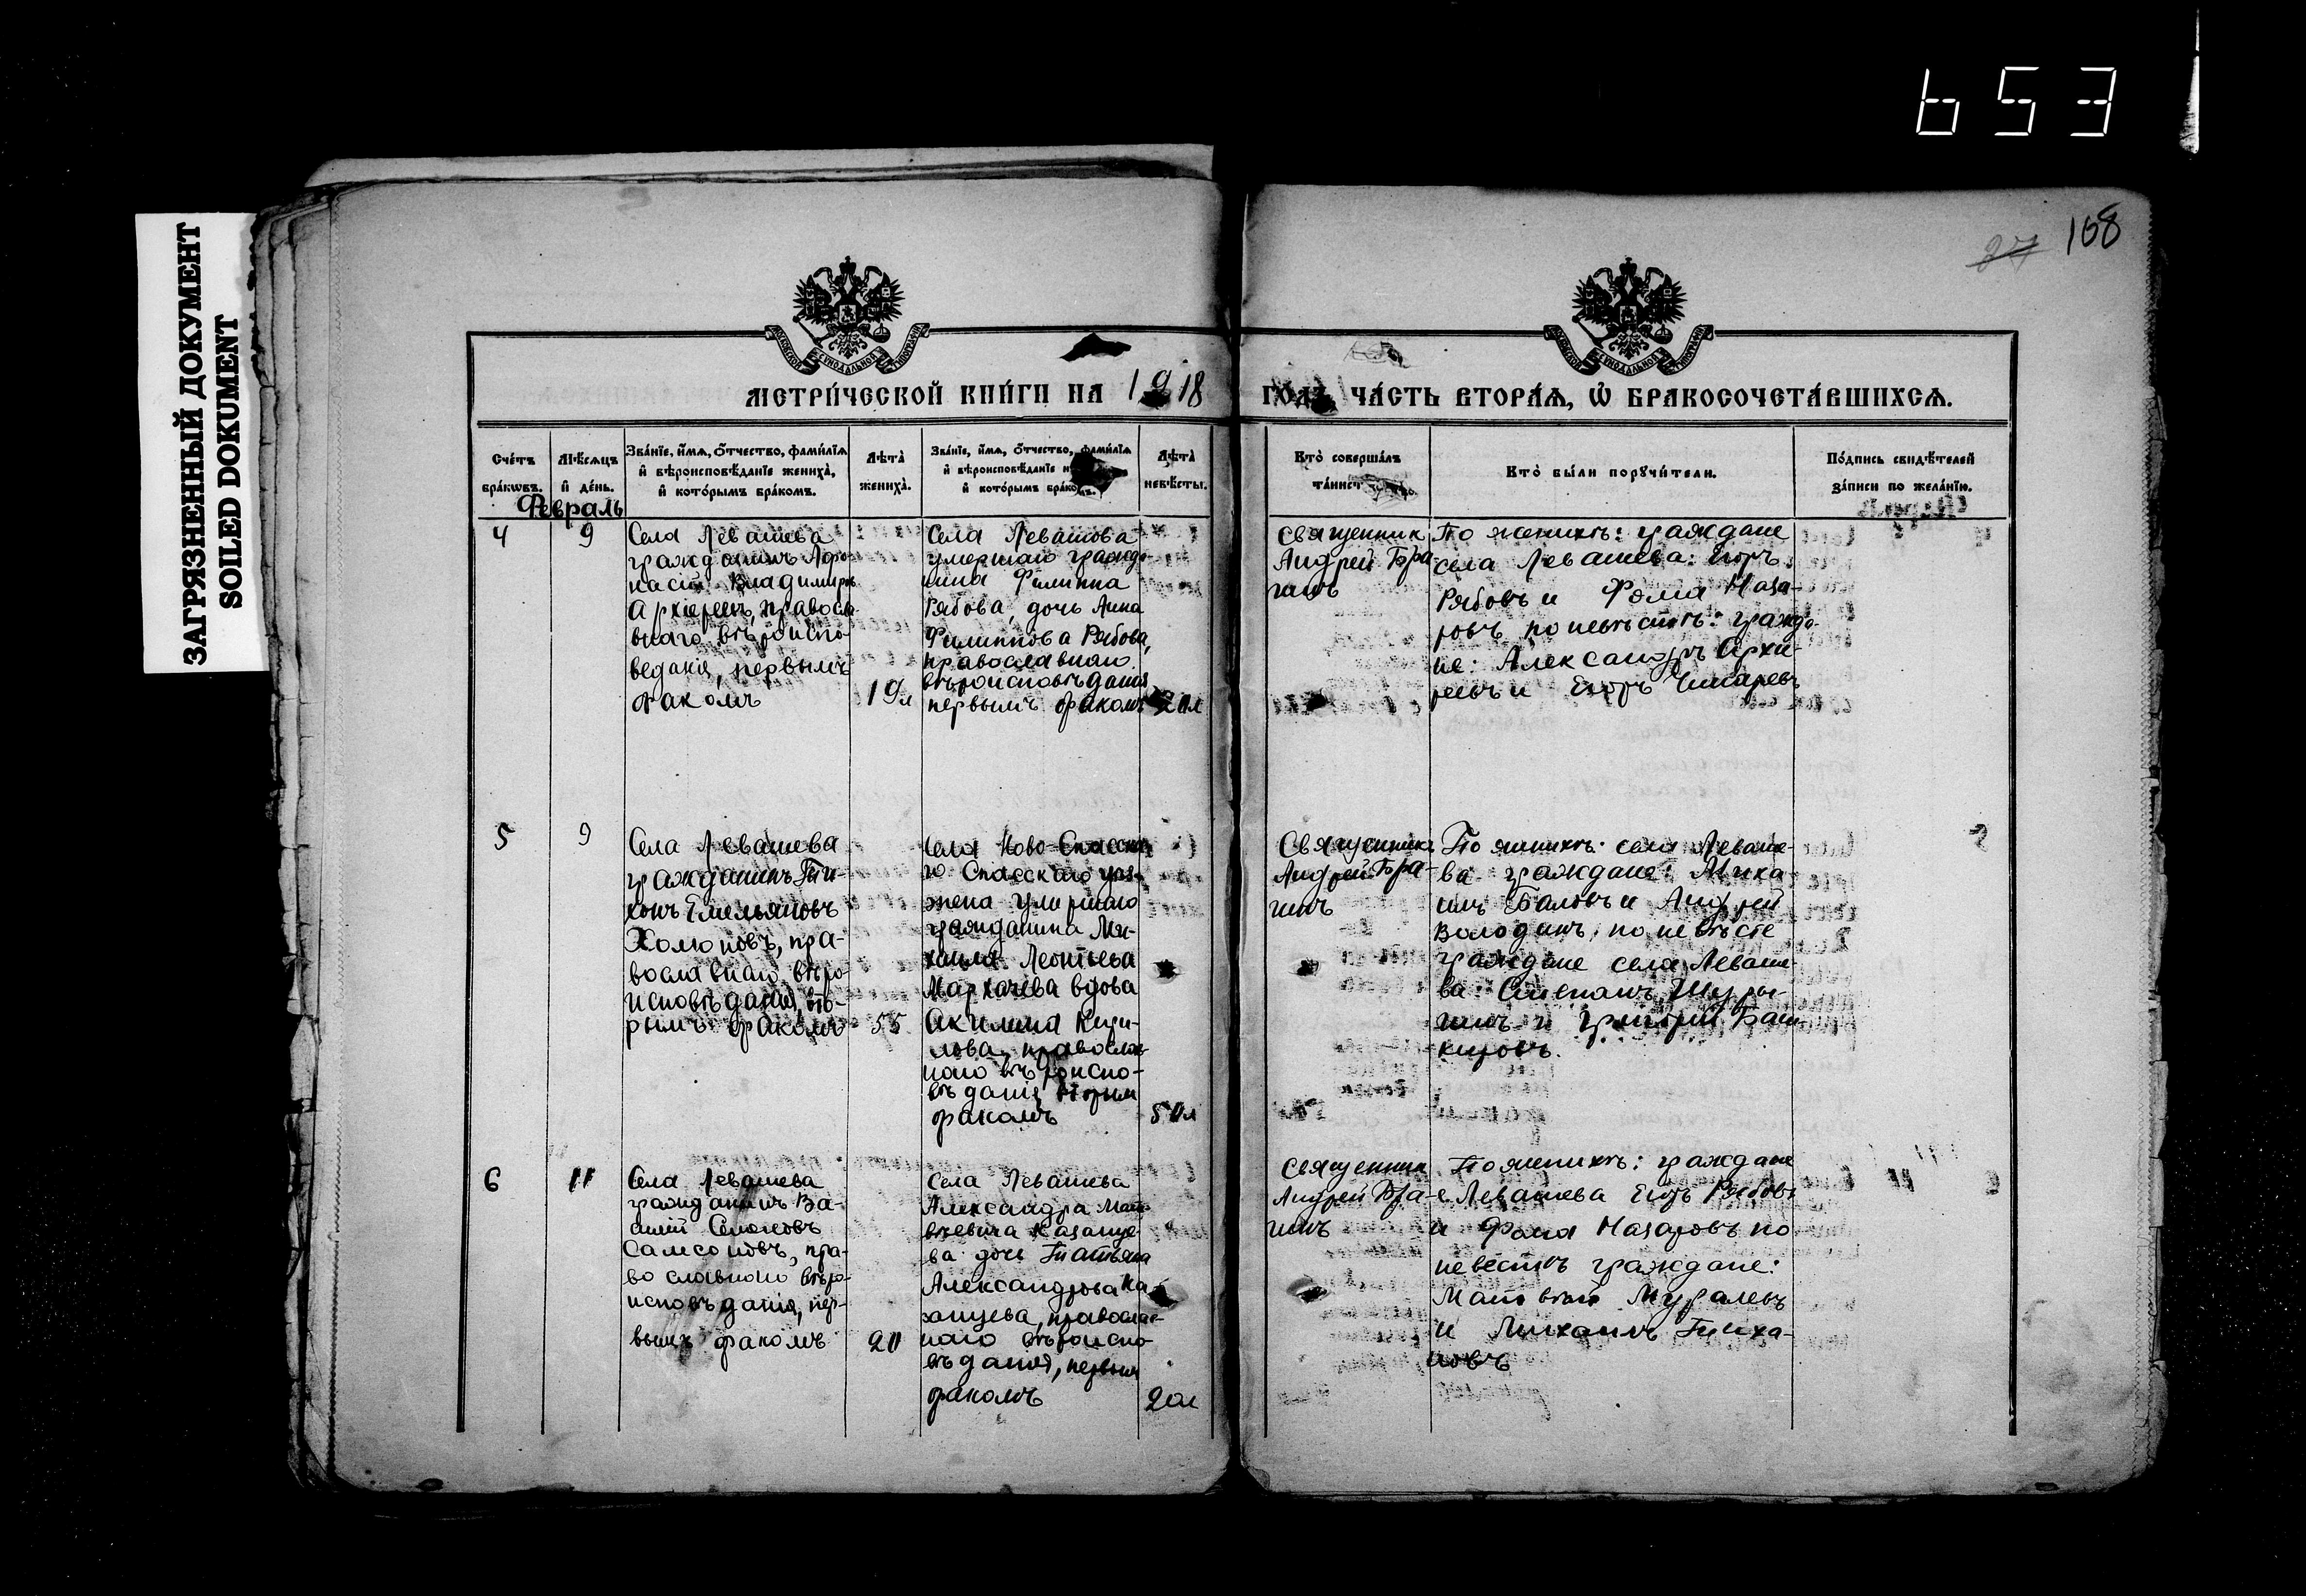 653
ЗАГРЯЗНЕННЫЙ ДОКУМЕНТ
SOILED DOKUMENT
27 168
МЕТРИ́ЧЕСКОЙ КНИ́ГИ НА 1918
ГОДЪ, ЧА́СТЬ ВТОРА́Ѧ, Ѽ БРАКОСОЧЕТА́ВШИХСѦ.
Сче́тъ
бра́кѡвъ.
Мѣ́сѧцъ
и҆ де́нь.
Зва́нїе, и҆́мѧ, ѻ҆́тчество, фами́лїѧ
и҆ вѣроисповѣ́данїе жениха̀,
и҆ кото́рымъ бра́комъ.
Лѣта̀
жениха̀.
Зва́нїе, и҆́мѧ, ѻ҆́тчество, фами́лїѧ
и҆ вѣроисповѣ́данїе
и҆ кото́рымъ бра́комъ.
Лѣта̀
невѣ́сты.
Кто̀ соверша́лъ
та́инст
Кто̀ бы́ли порꙋчи́тели.
По́дпись свидѣ́телей
за́писи по жела́нїю.
Февраль
4
9
Села Левашева
гражданинъ Афо-
насій Владимиръ
Архиреевъ, правосла-
внаго вѣроиспо-
веданія, первымъ
бракомъ
19л
Села Левашова
умершаго гражда-
нина Филиппа
Рябова, дочь Анна
Филиппова Рябова,
православнаго
вѣроисповѣданія
первымъ бракомъ
20л
Священник
Андрей Бра-
гинъ
По женихѣ: граждане
села Левашева: Егоръ
Рябовъ и Фома Наза-
ровъ по невѣстѣ: гражда-
не: Александръ Архи-
реевъ и Егоръ
5
9
Села Левашева
гражданинъ Ти-
хонъ Емельяновъ
Холоповъ, пра-
вославнаго вѣро-
исповѣданія, вто-
рымъ бракомъ
55
села Ново-Спасска-
го Спасскаго уѣз-
жена умершаго
гражданина Ми-
хаила Леонтьева
Мархачева вдова
Акилина Кири-
лова, православ-
наго вѣроиспо-
вѣданія, вторым
бракомъ
50л
Священникъ
Андрей Бра-
гинъ
По женихѣ: села Леваше-
ва граждане: Миха-
илъ Баловъ и Андрей
Володинъ, по невѣсте
граждане села Леваше-
ва Степанъ Шуры-
гинъ и Григорій Баш-
кировъ.
6
11
Села Левашева
гражданинъ Ва-
силій Семеновъ
Самсоновъ, пра-
вославнаго вѣро-
исповѣданія, пер-
вымъ бракомъ
20
Села Левашева
Александра Мат-
вѣевича Казанце-
ва дочь Татьяна
Александрова Ка-
занцева, православ-
наго вѣроиспо-
вѣданія, первым
бракомъ
20л
Священник
Андрей Бра-
гинъ
По женихѣ: граждане
с. Левашева Егоръ Рябовъ
и Фома Назаровъ по
невестѣ граждане:
Матвѣй Муралевъ
и Михаилъ Тиха-
новъ